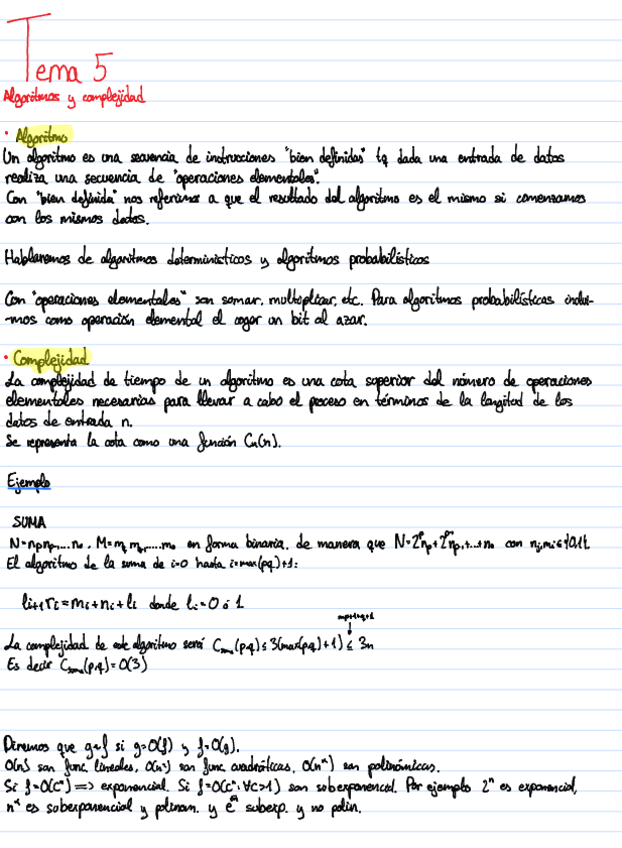 Tema 5
Algoritmos y complejidad
• Algoritmo
Un algoritmo es una secuencia de instrucciones "bien definidas" tq dada una entrada de datos
realiza una secuencia de "operaciones elementales".
Con "bien definida" nos referimos a que el resultado del algoritmo es el mismo si comenzamos
con los mismos datos.
Hablaremos de algoritmos determinísticos y algoritmos probabilísticos
Con "operaciones elementales" son sumar, multiplicar, etc. Para algoritmos probabilísticos inclui-
-mos como operación elemental el coger un bit al azar.
• Complejidad
La complejidad de tiempo de un algoritmo es una cota superior del número de operaciones
elementales necesarias para llevar a cabo el proceso en términos de la longitud de los
datos de entrada n.
Se representa la cota como una función Cn(n).
Ejemplo
SUMA
en forma binaria, de manera que
El algoritmo de la suma de i=0 hasta i=max(p,q)+1:
li+1 ri = mi + ni + li donde li = 0 ó 1
La complejidad de este algoritmo será C (p,q) ≤ 3(max(p,q)+1) ≤ 3n
Es decir C (p,q) = O(3)
Diremos que g~f si g=O(f) y f=O(g).
O(n) son func. lineales, O(n²) son func. cuadráticas, son polinómicas.
exponencial. Si son subexponencial. Por ejemplo 2ⁿ es exponencial,
es subexponencial y polinom. y es subexp. y no polin.